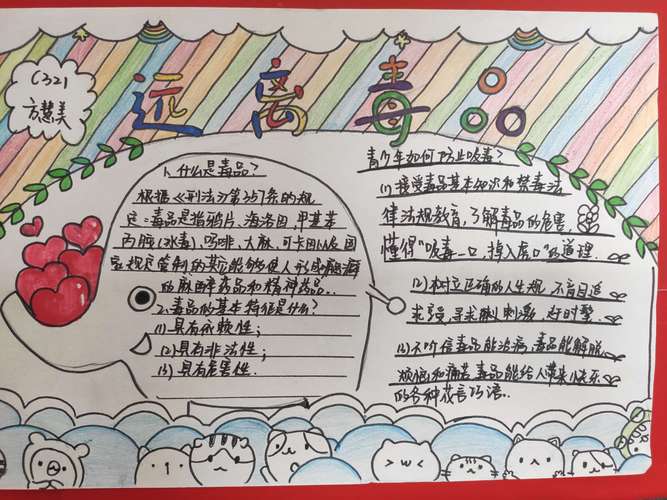 C321
方慧美
远离毒品
1、什么是毒品?
根据《刑法》第357条的规
定：毒品是指鸦片、海洛因，甲基苯
丙胺(冰毒)、吗啡、大麻、可卡因以及国
家规定管制的其它能够使人形成瘾癖
的麻醉药品和精神药品。
2、毒品的基本特征是什么?
(1)具有依赖性；
(2)具有非法性；
(3)具有危害性.
青少年如何防止吸毒?
(1)接受毒品基本知识和禁毒法
律法规教育，了解毒品的危害，
懂得“吸毒一口，掉入虎口”的道理.
(2)树立正确的人生观，不盲目追
求享受，寻求刺激，赶时髦.
(3)不听信毒品能治病，毒品能解脱
烦恼和痛苦，毒品能给人带来快乐
的各种花言巧语.